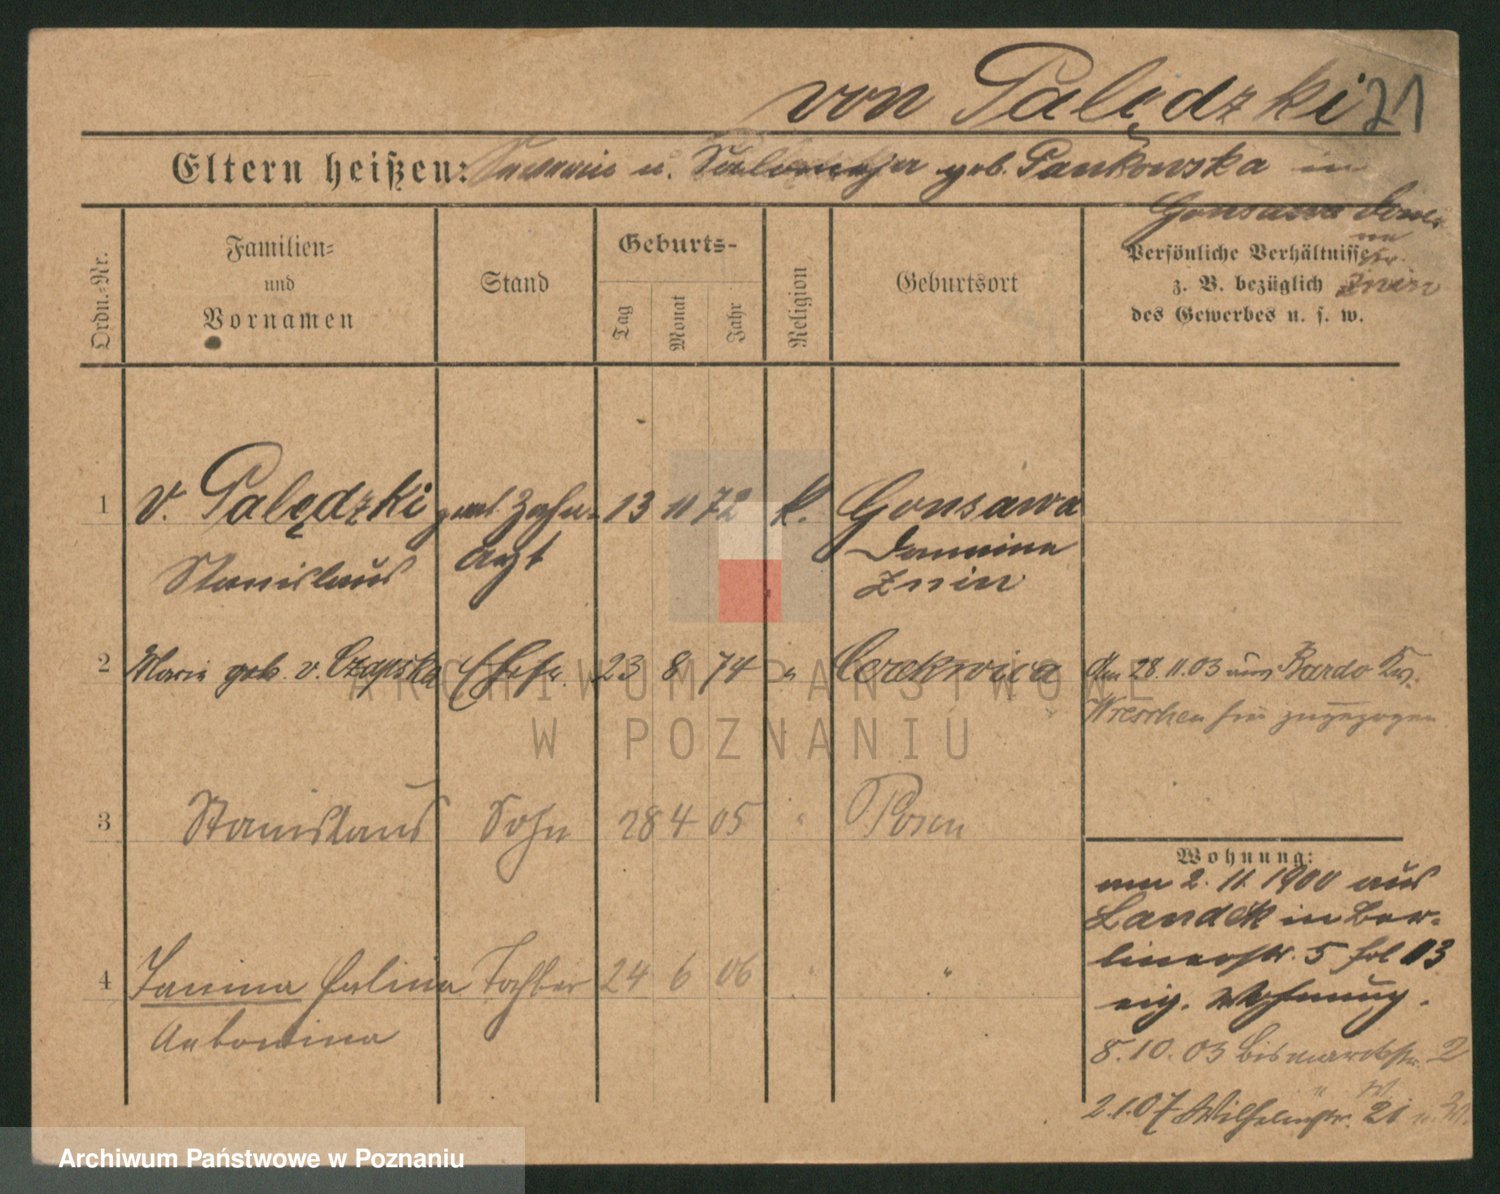 von Palędzki 21
Eltern heißen: Xawerie u. Salomeja geb. Pankowska in
Gonsawa Domae
ne
Kr.
Znin
Ordn.-Nr.
Familien-
und
Vornamen
Stand
Geburts-
Tag
Monat
Jahr
Religion
Geburtsort
Persönliche Verhältnisse
z. B. bezüglich
des Gewerbes u. s. w.
1 v. Palędzki prakt Zahn- 13 11 72 k. Gonsawa
Stanislaus Arzt Domaine
Znin
2 Marie geb. v. Czapska Ehefr. 23 8 74 " Cerekwica den 28.11.03 aus Bardo Krs.
Wreschen hier zugezogen
3 Stanislaus Sohn 28 4 05 " Posen
4 Janina Halina Tochter 24 6 06 " "
Antonina
Wohnung:
am 2. 11. 1900 aus
Landek in Ber-
linerstr. 5 hol 03
eig. Wohnung.
8.10.03 Bismarckstr. 2
2.1.07 Wilhelmstr. 21
ARCHIWUM PAŃSTWOWE
W POZNANIU
Archiwum Państwowe w Poznaniu